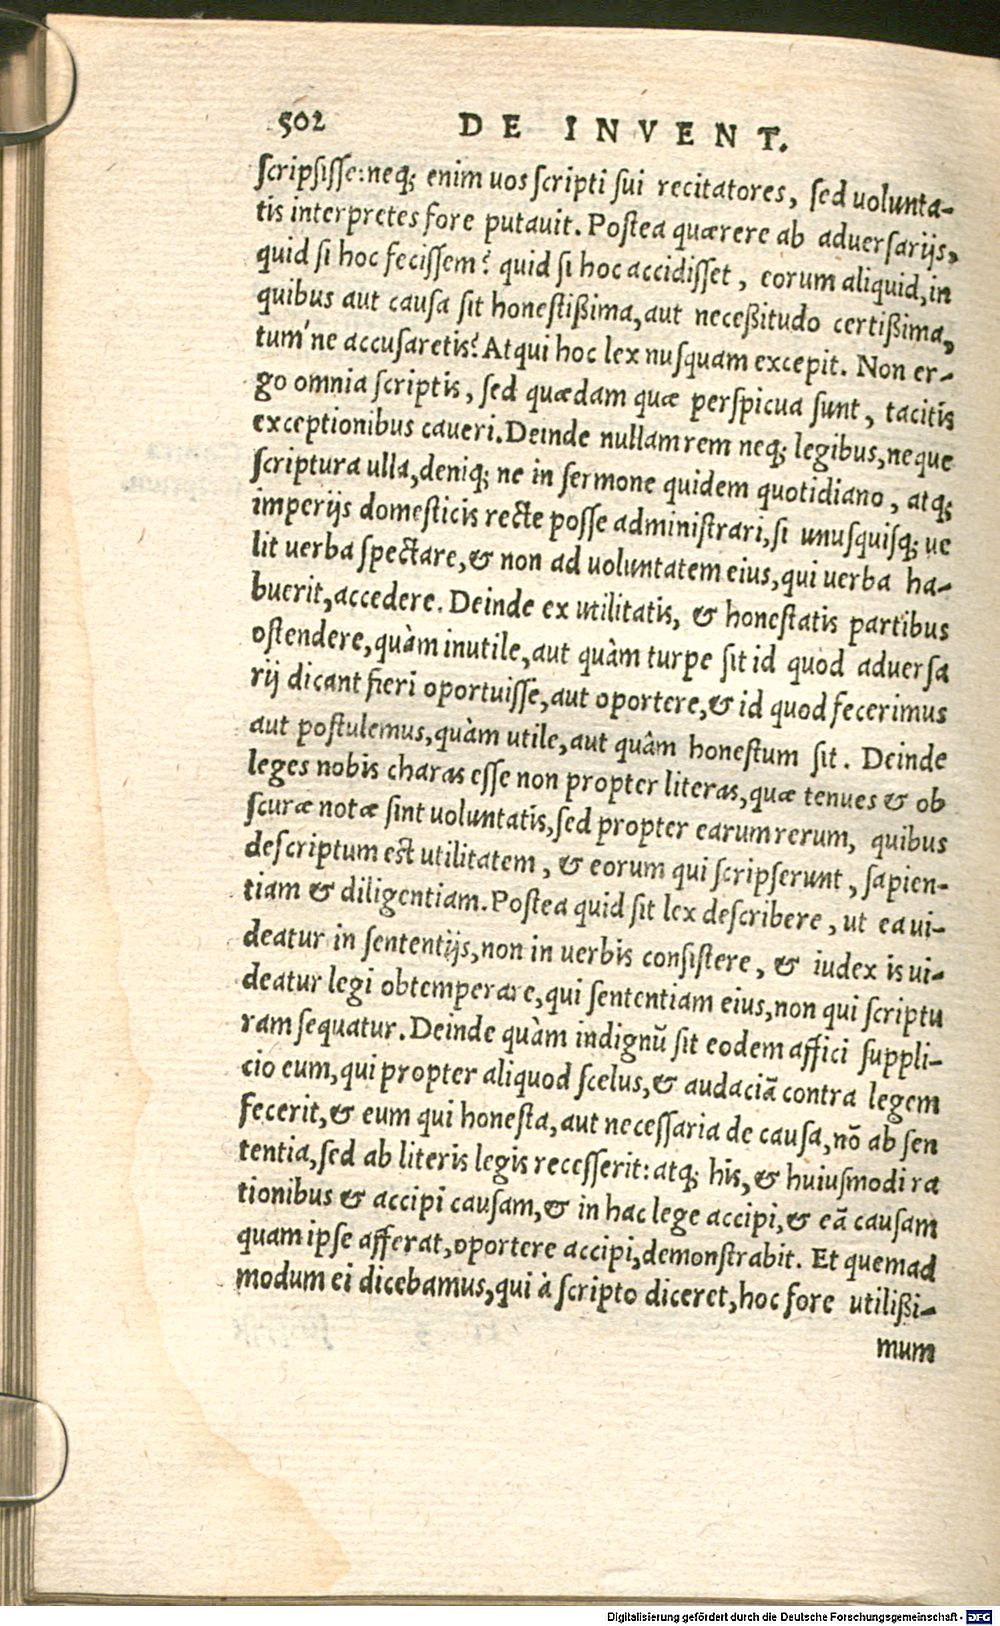 502 DE INVENT.
ſcripſiſſe: neq; enim uos ſcripti ſui recitatores, ſed uolunta-
tis interpretes fore putauit. Poſtea quærere ab aduerſarijs,
quid ſi hoc feciſſem? quid ſi hoc accidiſſet, eorum aliquid, in
quibus aut cauſa ſit honeſtißima, aut neceßitudo certißima,
tum'ne accuſaretis? Atqui hoc lex nuſquam excepit. Non er-
go omnia ſcriptis, ſed quædam quæ perſpicua ſunt, tacitis
exceptionibus caueri. Deinde nullam rem neq; legibus, neque
ſcriptura ulla, deniq; ne in ſermone quidem quotidiano, atq;
imperijs domeſticis recte poſſe adminiſtrari, ſi unuſquiſq; ue
lit uerba ſpectare, & non ad uoluntatem eius, qui uerba ha-
buerit, accedere. Deinde ex utilitatis, & honeſtatis partibus
oſtendere, quàm inutile, aut quàm turpe ſit id quod aduerſa
rij dicant fieri oportuiſſe, aut oportere, & id quod fecerimus
aut poſtulemus, quàm utile, aut quâm honeſtum ſit. Deinde
leges nobis charas eſſe non propter literas, quæ tenues & ob
ſcuræ notæ ſint uoluntatis, ſed propter earum rerum, quibus
deſcriptum eſt utilitatem, & eorum qui ſcripſerunt, ſapien-
tiam & diligentiam. Poſtea quid ſit lex deſcribere, ut ea ui-
deatur in ſententijs, non in uerbis conſiſtere, & iudex is ui-
deatur legi obtemperare, qui ſententiam eius, non qui ſcriptu
ram ſequatur. Deinde quàm indignũ ſit eodem affici ſuppli-
cio eum, qui propter aliquod ſcelus, & audaciã contra legem
fecerit, & eum qui honeſta, aut neceſſaria de cauſa, nõ ab ſen
tentia, ſed ab literis legis receſſerit: atq; his, & huiuſmodi ra
tionibus & accipi cauſam, & in hac lege accipi, & eã cauſam
quam ipſe afferat, oportere accipi, demonſtrabit. Et quemad
modum ei dicebamus, qui à ſcripto diceret, hoc fore utilißi-
mum
Digitalisierung gefördert durch die Deutsche Forschungsgemeinschaft - DFG